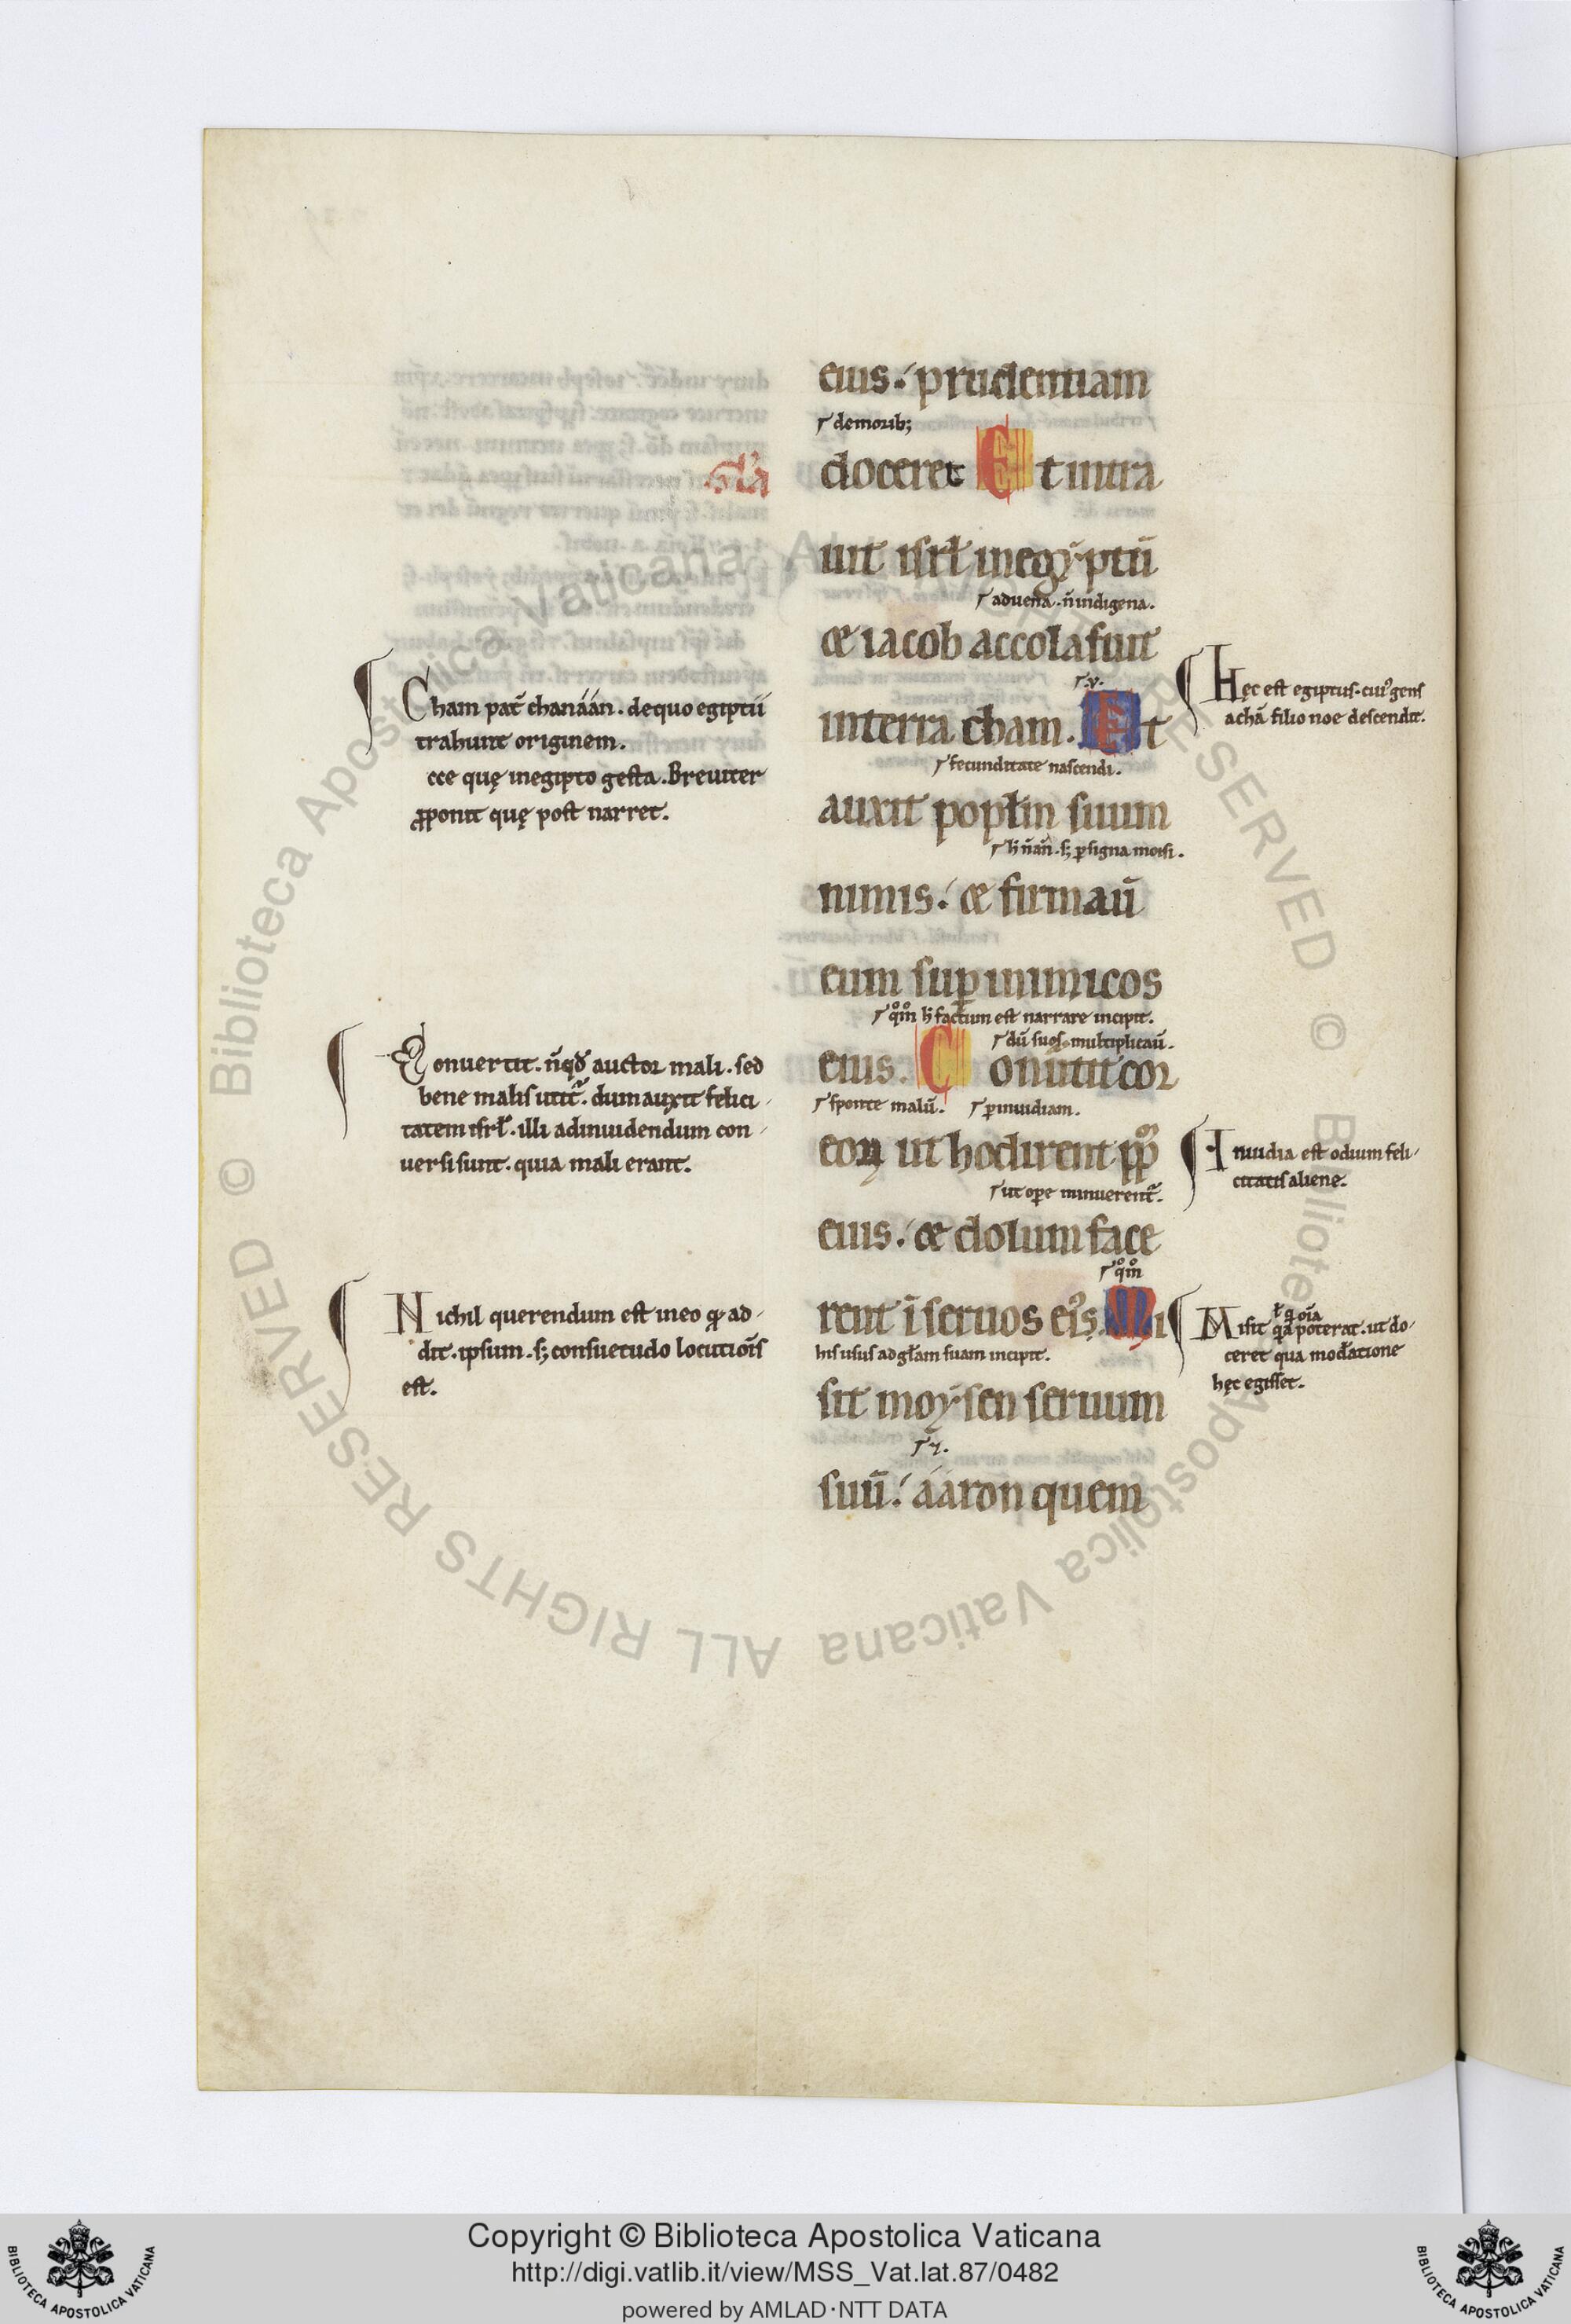 eius. prudentiam
de morib;
gl'a
doceret Et intra
uit isrl̄ in egyptū
aduena. n̄ indigena.
& iacob accola fuit
in terra cham. Et
fecunditate nascendi.
auxit poplm̄ suum
h̄ n̄ an̄. s; p signa moisi.
nimis. & firmaū
eum sup inimicos
qm̄ h̄ factum est narrare incipit.
dū suos multiplicaū.
eius. Conūtit cor
sponte malū. p inuidiam.
eoꝝ ut hodirent ppl̄m
ut ope minuerent̄.
eius. & dolum face
qm̄
rent ī seruos ei's. Mi
his usus ad gl̄am suam incipit.
sit moysen seruum
suū. aaron quem
Cham pat̄ chanáán. de quo egiptii
trahunt originem.
cce quę in egipto gesta. Breuiter
ꝓponit quę post narret.
Conuertit. n̄ qd̄ auctor mali. sed
bene malis utit̄. dum auxit felici
tatem isrl̄. illi ad inuidendum con
uersi sunt. quia mali erant.
Nichil querendum est in eo qd̄ ad
dit. ipsum. s; consuetudo locutiōis
est.
Hęc est egiptus. cui' gens
a chā filio noe descendit.
Inuidia est odium feli
citatis aliene.
ł q oīa
Misit qa poterat. ut do
ceret qua mod̄atione
hęc egisset.
Copyright © Biblioteca Apostolica Vaticana
http://digi.vatlib.it/view/MSS_Vat.lat.87/0482
powered by AMLAD·NTT DATA
BIBLIOTECA APOSTOLICA VATICANA
BIBLIOTECA APOSTOLICA VATICANA
© Biblioteca Apostolica Vaticana ALL RIGHTS RESERVED © Biblioteca Apostolica Vaticana ALL RIGHTS RESERVED